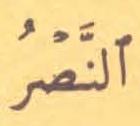 ٱلنَّصْرُ